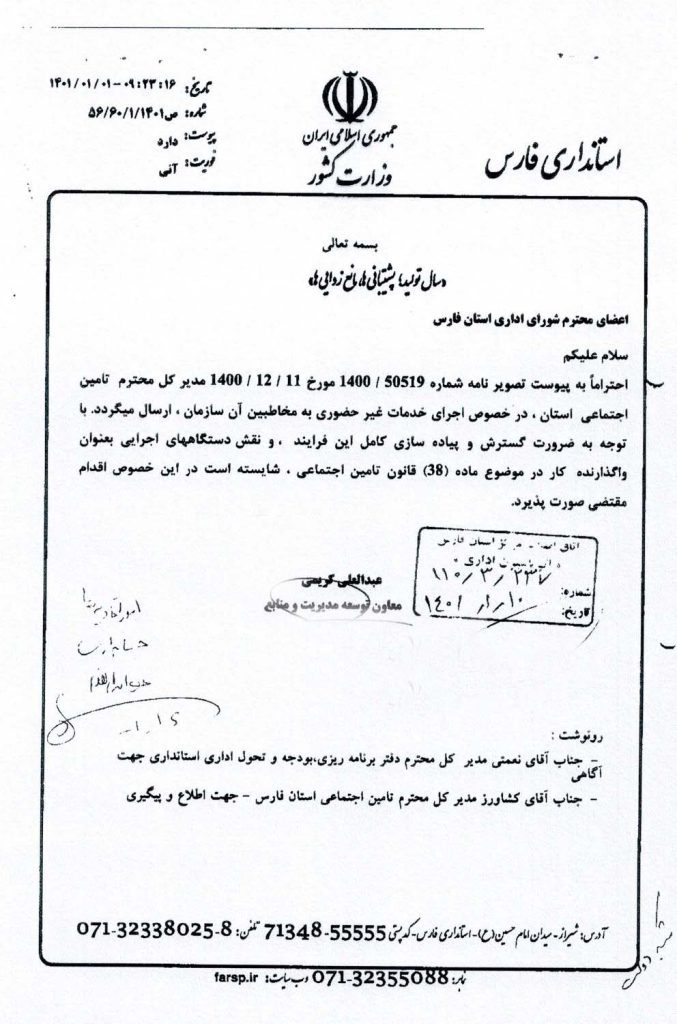 استانداری فارس
جمهوری اسلامی ایران
وزارت کشور
تاریخ: ۱۴۰۱/۰۱/۰۱-۰۹:۲۳:۱۶
شماره: ص۵۶/۶۰/۱/۱۴۰۱
پیوست: دارد
فوریت: آنی
بسمه تعالی
«سال تولید؛ پشتیبانی‌ها، مانع زدایی‌ها»
اعضای محترم شورای اداری استان فارس
سلام علیکم
احتراماً به پیوست تصویر نامه شماره 50519 / 1400 مورخ 11 / 12 / 1400 مدیر کل محترم تامین
اجتماعی استان ، در خصوص اجرای خدمات غیر حضوری به مخاطبین آن سازمان ، ارسال میگردد. با
توجه به ضرورت گسترش و پیاده سازی کامل این فرایند ، و نقش دستگاههای اجرایی بعنوان
واگذارنده کار در موضوع ماده (38) قانون تامین اجتماعی ، شایسته است در این خصوص اقدام
مقتضی صورت پذیرد.
مرکز استان فارس
شماره: ۱۱۰/۳/۲۳۷
تاریخ: ۱۴۰۱/۱/۱۰
عبدالعلی کریمی
معاون توسعه مدیریت و منابع
رونوشت :
- جناب آقای نعمتی مدیر کل محترم دفتر برنامه ریزی،بودجه و تحول اداری استانداری جهت
آگاهی
- جناب آقای کشاورز مدیر کل محترم تامین اجتماعی استان فارس - جهت اطلاع و پیگیری
آدرس: شیراز- میدان امام حسین(ع)- استانداری فارس- کدپستی 55555-71348 تلفن: 8-071-32338025
نمابر: 071-32355088 وب سایت: farsp.ir